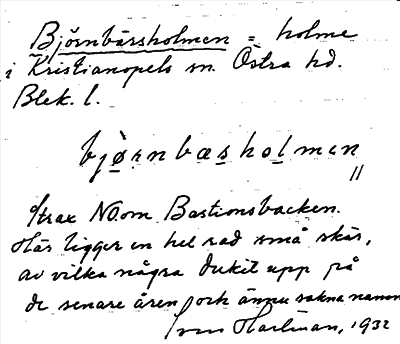 Björnbärsholmen = holme
i Kristianopels sn. Östra hd.
Blek. l.
bjørnbæsholmen
"
Strax NO.om Bastionsbacken.
Här ligger en hel rad små skär,
av vilka några dukit upp på
de senare åren, och ännu sakna namn
Sven Hartman, 1932